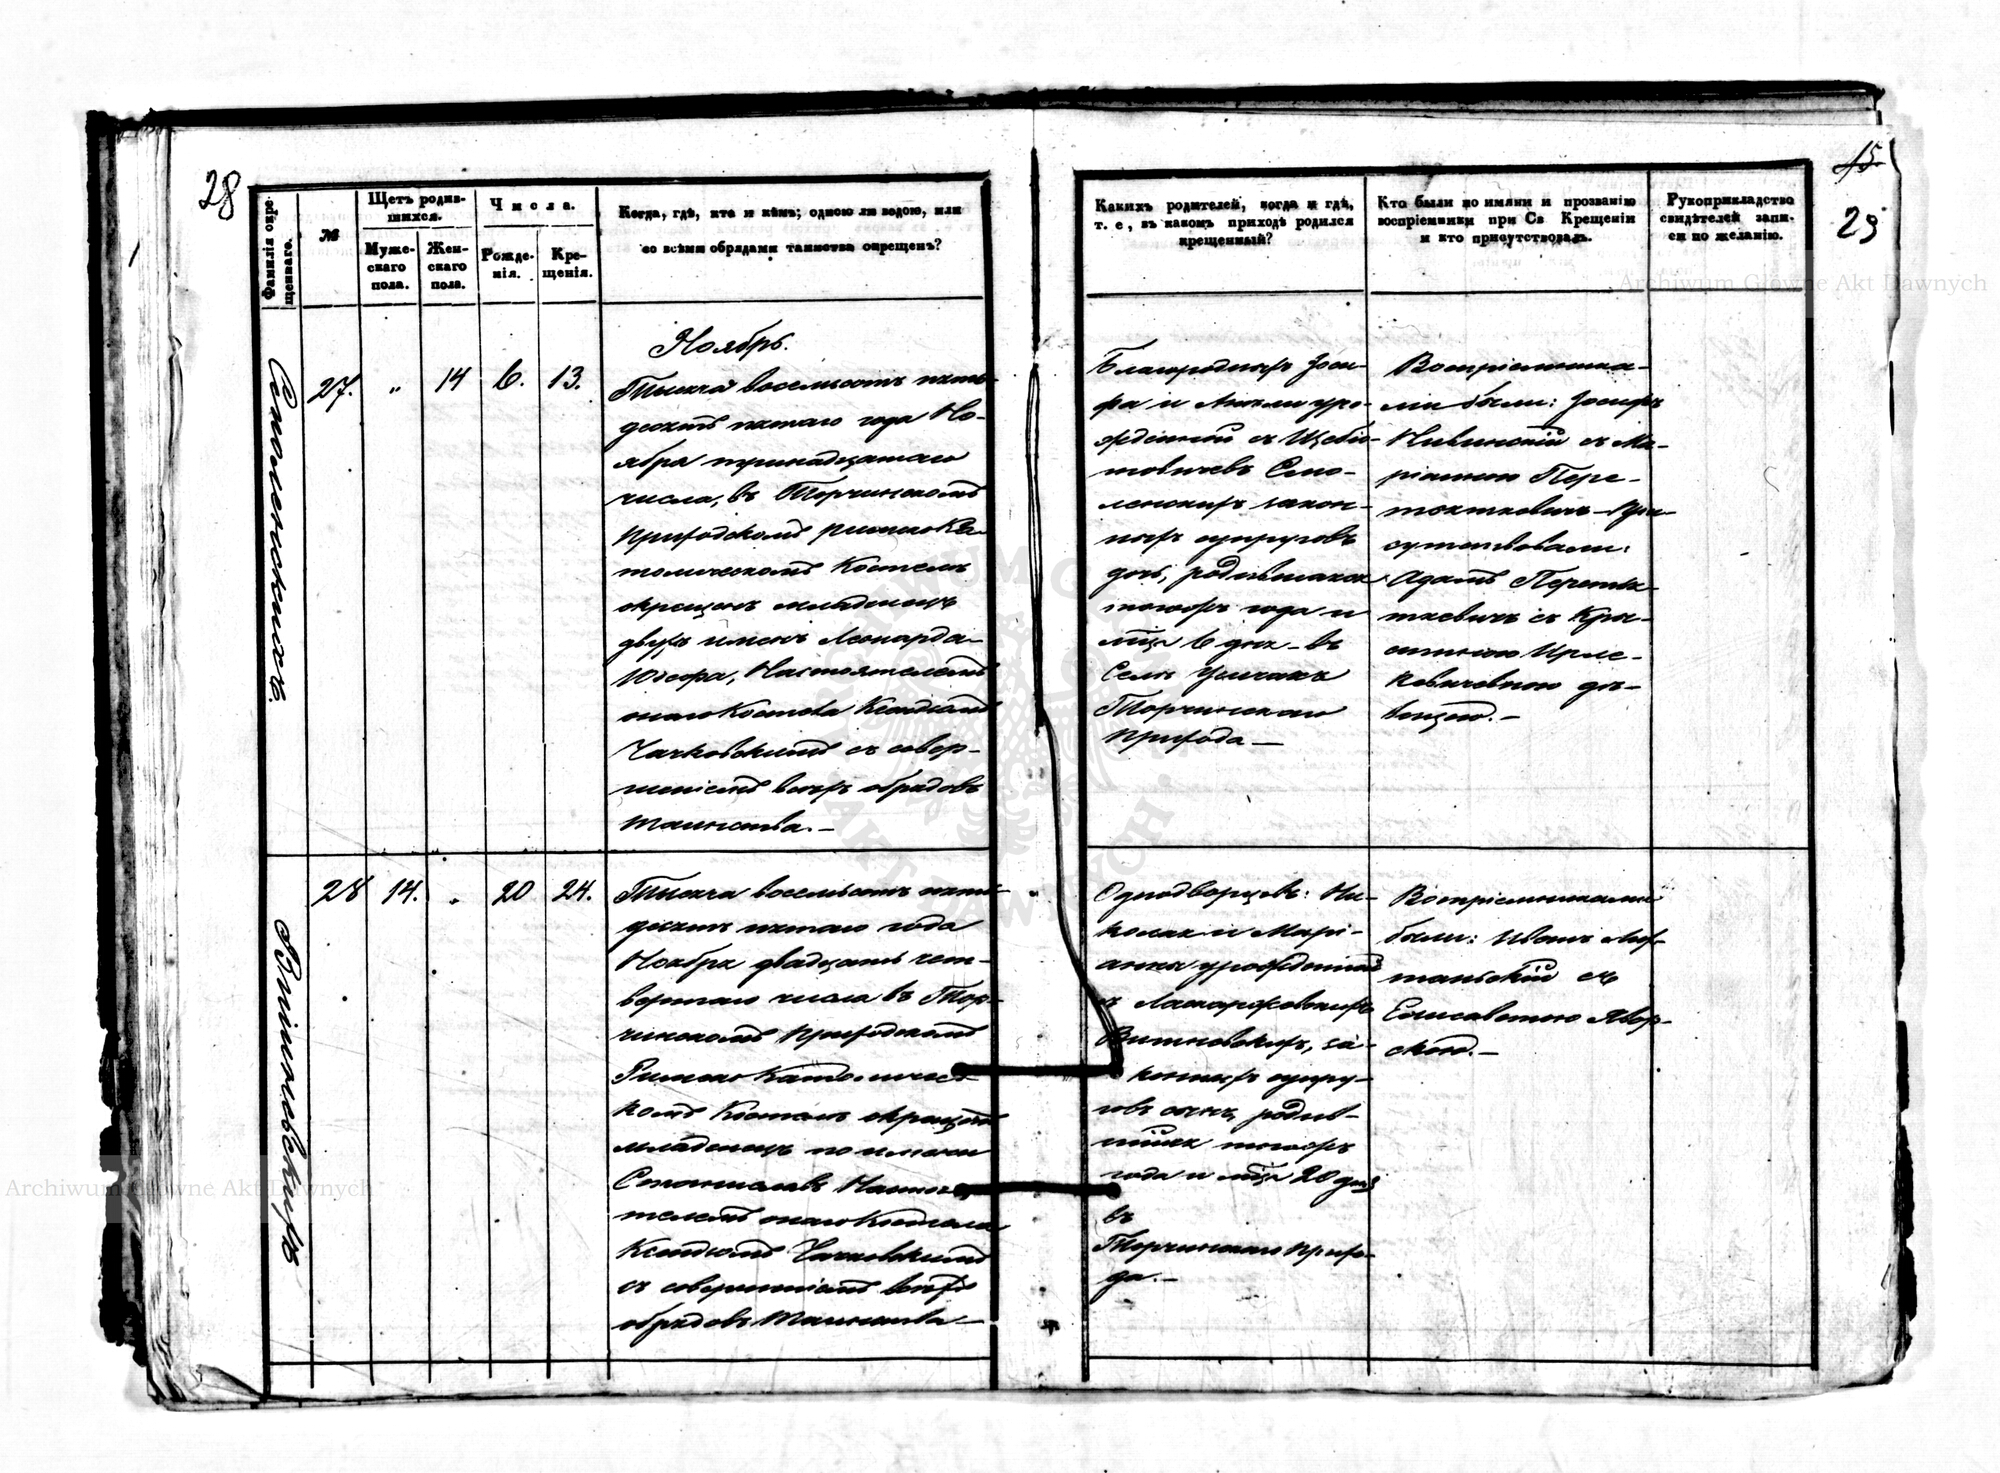 28
15
29
Фамилія окре-
щеннаго.
№
Щетъ родив-
шихся.
Муже-
скаго
пола.
Жен-
скаго
пола.
Числа.
Рожде-
нія.
Кре-
щенія.
Когда, гдѣ, кто и кѣмъ; одною ли водою, или
со всѣми обрядами таинства окрещенъ?
Какихъ родителей, когда и гдѣ,
т. е., въ какомъ приходѣ родился
крещенный?
Кто были по имяни и прозванію
воспріемники при Св. Крещеніи
и кто присутствовалъ.
Рукоприкладство
свидѣтелей запи-
си по желанію.
Смоленскихъ.
27. " 14 6. 13.
Ноябрь.
Тысяча восемьсотъ пять-
десятъ пятаго года Но-
ября тринадцатаго
числа, въ Торчинскомъ
Приходскомъ Римско Ка-
толическомъ Костелѣ
окрещенъ младенецъ
двухъ именъ Леонарда-
Юзефа, Настоятелемъ
онаго Костела Ксендзомъ
Чачковскимъ съ совер-
шеніемъ всѣхъ обрядовъ
таинства.—
Благородныхъ Іоси-
фа и уро-
жденной съ
Смо-
ленскихъ закон-
ныхъ супруговъ
дочь, родившаяся
тогожъ года и
мца 6 дня въ
Селѣ
Торчинскаго
Прихода—
Воспріемника-
ми были: Іосифъ
съ Ма-
ріанною Пере-
тяткевичъ При-
сутствовали:
Адамъ Перетят-
кевичъ съ Кри-
стиною
дѣ-
вицею.—
Витковскихъ
28 14. " 20 24.
Тысяча восемьсотъ пять
десятъ пятаго года
Ноября двадцать чет-
вертаго числа въ Тор-
чинскомъ Приходскомъ
Римско Католичес-
комъ Костелѣ окрещенъ
младенецъ по имени
Станиславъ Настоя-
телемъ онаго Костела
Ксендзомъ Чачковскимъ
съ совершеніемъ всѣхъ
обрядовъ Таинства—
Однодворцевъ: Ни-
колая и Марі-
анны урожденной
съ
Витковскихъ, за-
конныхъ супру-
говъ сынъ, родив-
шійся тогожъ
года и мца 20 дня
въ
Торчинскаго Прихо-
да.—
Воспріемниками
были: Иванъ
съ
Елисаветою Явор-
скою.—
Archiwum Główne Akt Dawnych
Archiwum Główne Akt Dawnych